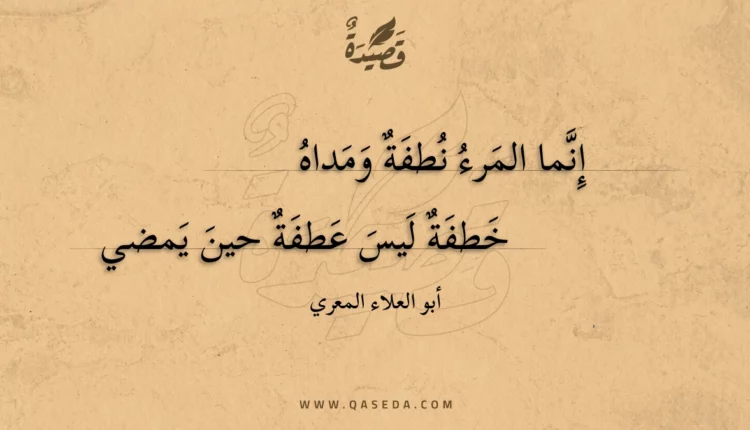 قَصِيدَةٌ
إِنَّما المَرءُ نُطفَةٌ وَمَداهُ
خَطفَةٌ لَيسَ عَطفَةٌ حينَ يَمضي
أبو العلاء المعري
WWW.QASEDA.COM